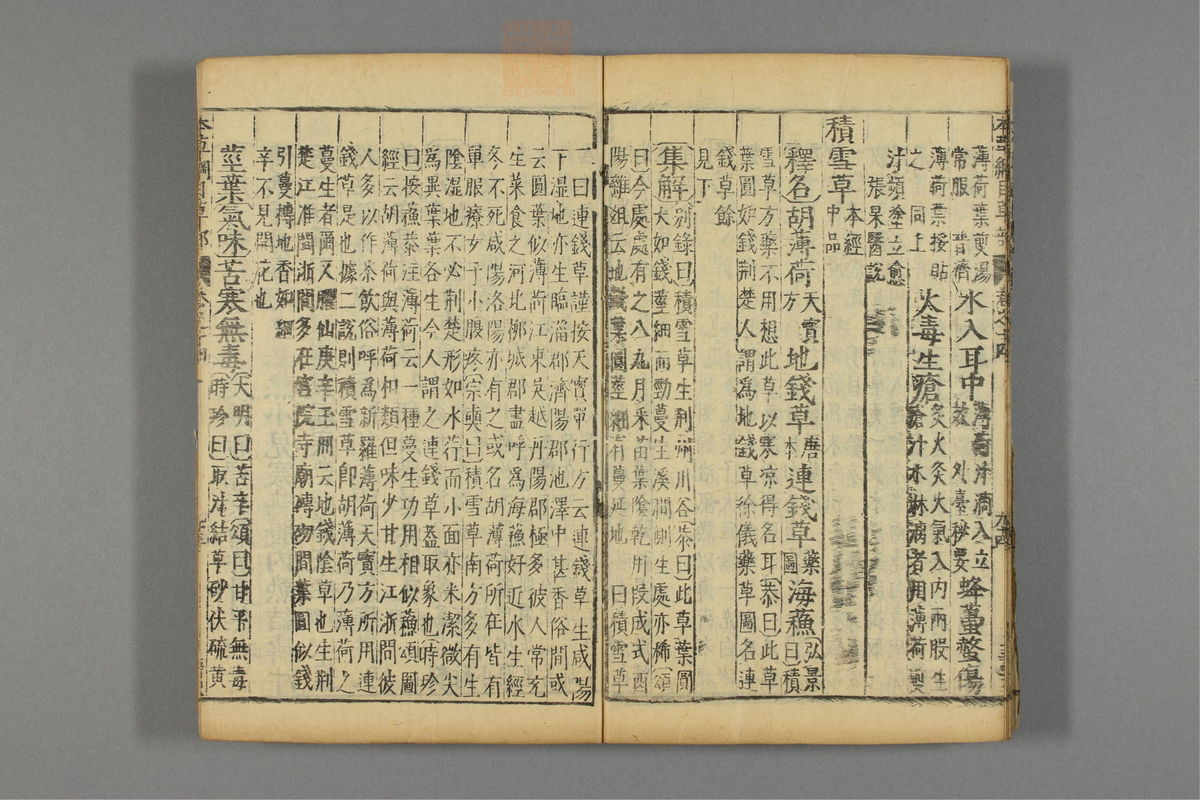 薄荷葉煎湯常服 普濟 水入耳中 薄荷汁滴入立效 外臺秘要 蜂蠆螫傷
薄荷葉挼貼之 同上 火毒生瘡 灸火灸火氣入內兩股生瘡汁水淋漓者用薄荷煎
汁頻塗立愈 張杲醫說
積雪草 本經中品
釋名 胡薄荷 天寶方 地錢草 唐本 連錢草 藥圖 海蘓 弘景曰積
雪草方藥不用想此草以寒凉得名耳恭曰此草
葉圓如錢荆楚人謂為地錢草徐儀藥草圖名連
錢草餘見下
集解 别錄曰積雪草生荆州川谷恭曰此草葉圓
大如錢莖細而勁蔓生溪澗側生處亦稀頌
曰今處處有之八九月采苗葉陰乾用段成式酉
陽雜組云地錢葉圓莖細有蔓延地 曰積雪草
一曰連錢草謹按天寳單行方云連錢草生咸陽
下濕地亦生臨淄郡濟陽郡池澤中甚香俗間或
云圓葉似薄荷江東吳越丹陽郡極多彼人常充
生菜食之河北柳城郡盡呼爲海蘓好近水生經
冬不死咸陽洛陽亦有之或名胡薄荷所在皆有
單服療女子小腹疼宗奭曰積雪草南方多有生
陰濕地不必荆楚形如水荇而小面亦米潔微尖
爲異葉葉各生今人謂之連錢草蓋取象也時珍
曰按蘓恭注薄荷云一種蔓生功用相似蘓頌圖
經云胡薄荷與薄荷相類但味少甘生江浙間彼
人多以作茶飲俗呼爲新羅薄荷天寶方所用連
錢草是也據二說則積雪草卽胡薄荷乃薄荷之
蔓生者爾又臞仙庚辛玉冊云地錢陰草也生荆
楚江淮間浙間多在宮院寺廟磚砌間葉圓似錢
引蔓搏地香如細辛不見開花也
莖葉氣味苦寒無毒 大明曰苦辛頌曰甘平無毒
時珍曰取汁結草砂伏硫黄